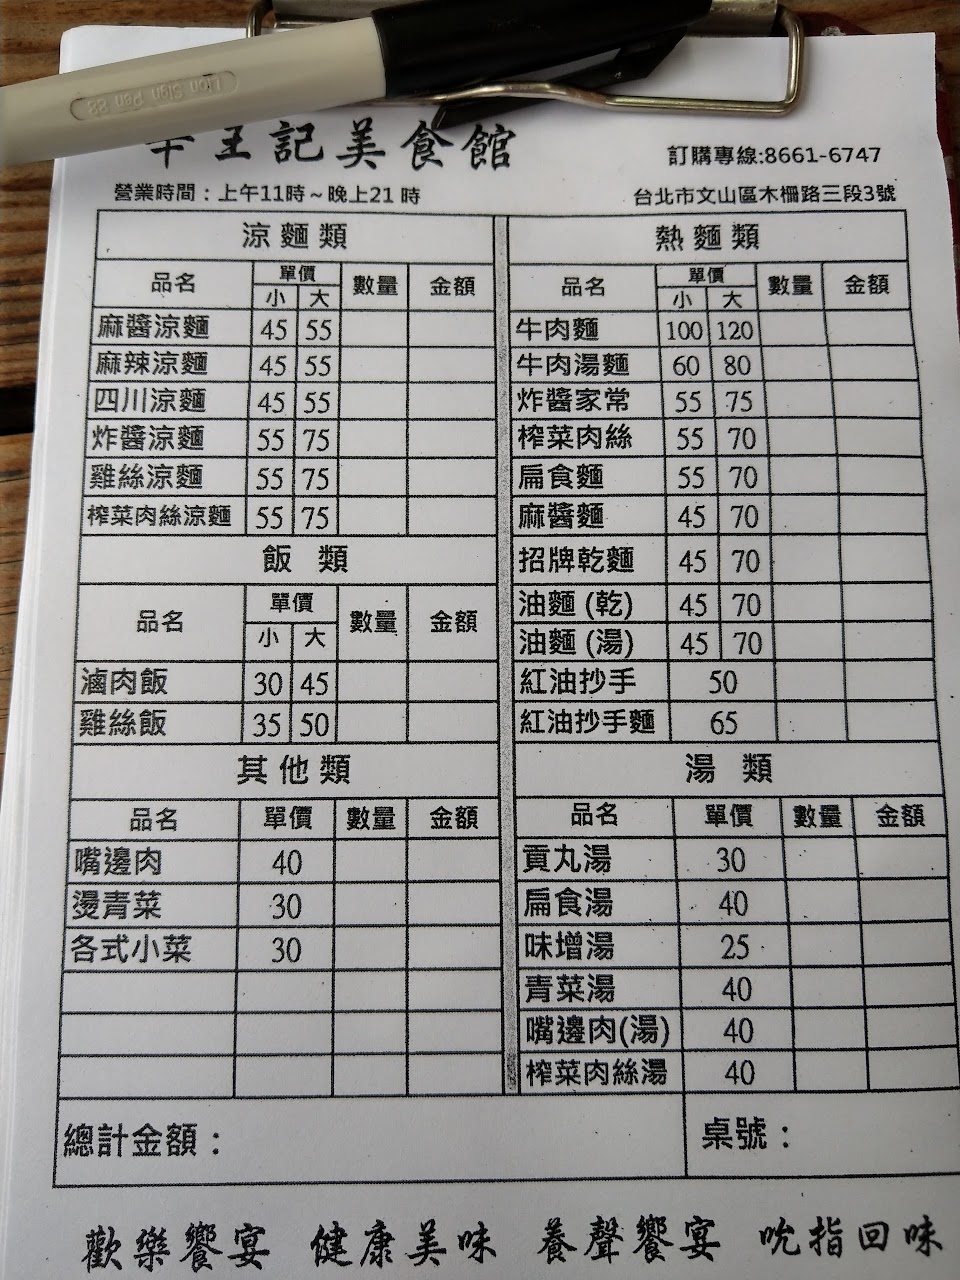 Lion Sign Pen 88
王記美食館
訂購專線:8661-6747
營業時間：上午11時～晚上21時
台北市文山區木柵路三段3號
涼麵類
品名 單價 數量 金額
小 大
麻醬涼麵 45 55
麻辣涼麵 45 55
四川涼麵 45 55
炸醬涼麵 55 75
雞絲涼麵 55 75
榨菜肉絲涼麵 55 75
飯 類
品名 單價 數量 金額
小 大
滷肉飯 30 45
雞絲飯 35 50
其他類
品名 單價 數量 金額
嘴邊肉 40
燙青菜 30
各式小菜 30
熱麵類
品名 單價 數量 金額
小 大
牛肉麵 100 120
牛肉湯麵 60 80
炸醬家常 55 75
榨菜肉絲 55 70
扁食麵 55 70
麻醬麵 45 70
招牌乾麵 45 70
油麵(乾) 45 70
油麵(湯) 45 70
紅油抄手 50
紅油抄手麵 65
湯 類
品名 單價 數量 金額
貢丸湯 30
扁食湯 40
味增湯 25
青菜湯 40
嘴邊肉(湯) 40
榨菜肉絲湯 40
總計金額：
桌號：
歡樂饗宴 健康美味 養聲饗宴 吮指回味